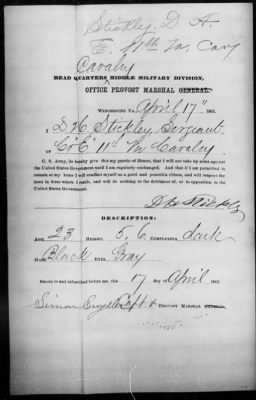 Stickley D. H.
E. 11th Va. Cav'y
Cavalry
HEAD QUARTERS MIDDLE MILITARY DIVISION,
OFFICE PROVOST MARSHAL GENERAL.
WINCHESTER VA. April 17" 1865.
I D H Stickley, Sergeant
Co "E" 11th Va Cavalry
C. S. Army, do hereby give this my parole of Honor, that I will not take up arms against the
United States Government until I am regularly exchanged. And that if I am permitted to
remain at my home I will conduct myself as a good and peaceable citizen, and will respect the
laws in force where I reside, and will do nothing to the detriment of, or in opposition to the
United States Government.
D H Stickley
DESCRIPTION:
AGE, 23 HEIGHT, 5, 6 COMPLEXION, dark
HAIR Black EYES, Gray
Sworn to and subscribed before me, this 17 day of April 1865.
Simon Capt. & PROVOST MARSHAL GENERAL.